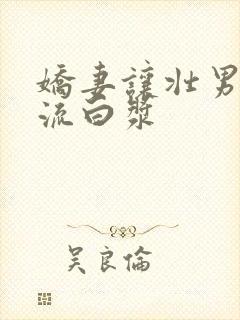 嬌妻讓壯男
流白漿
吳良倫